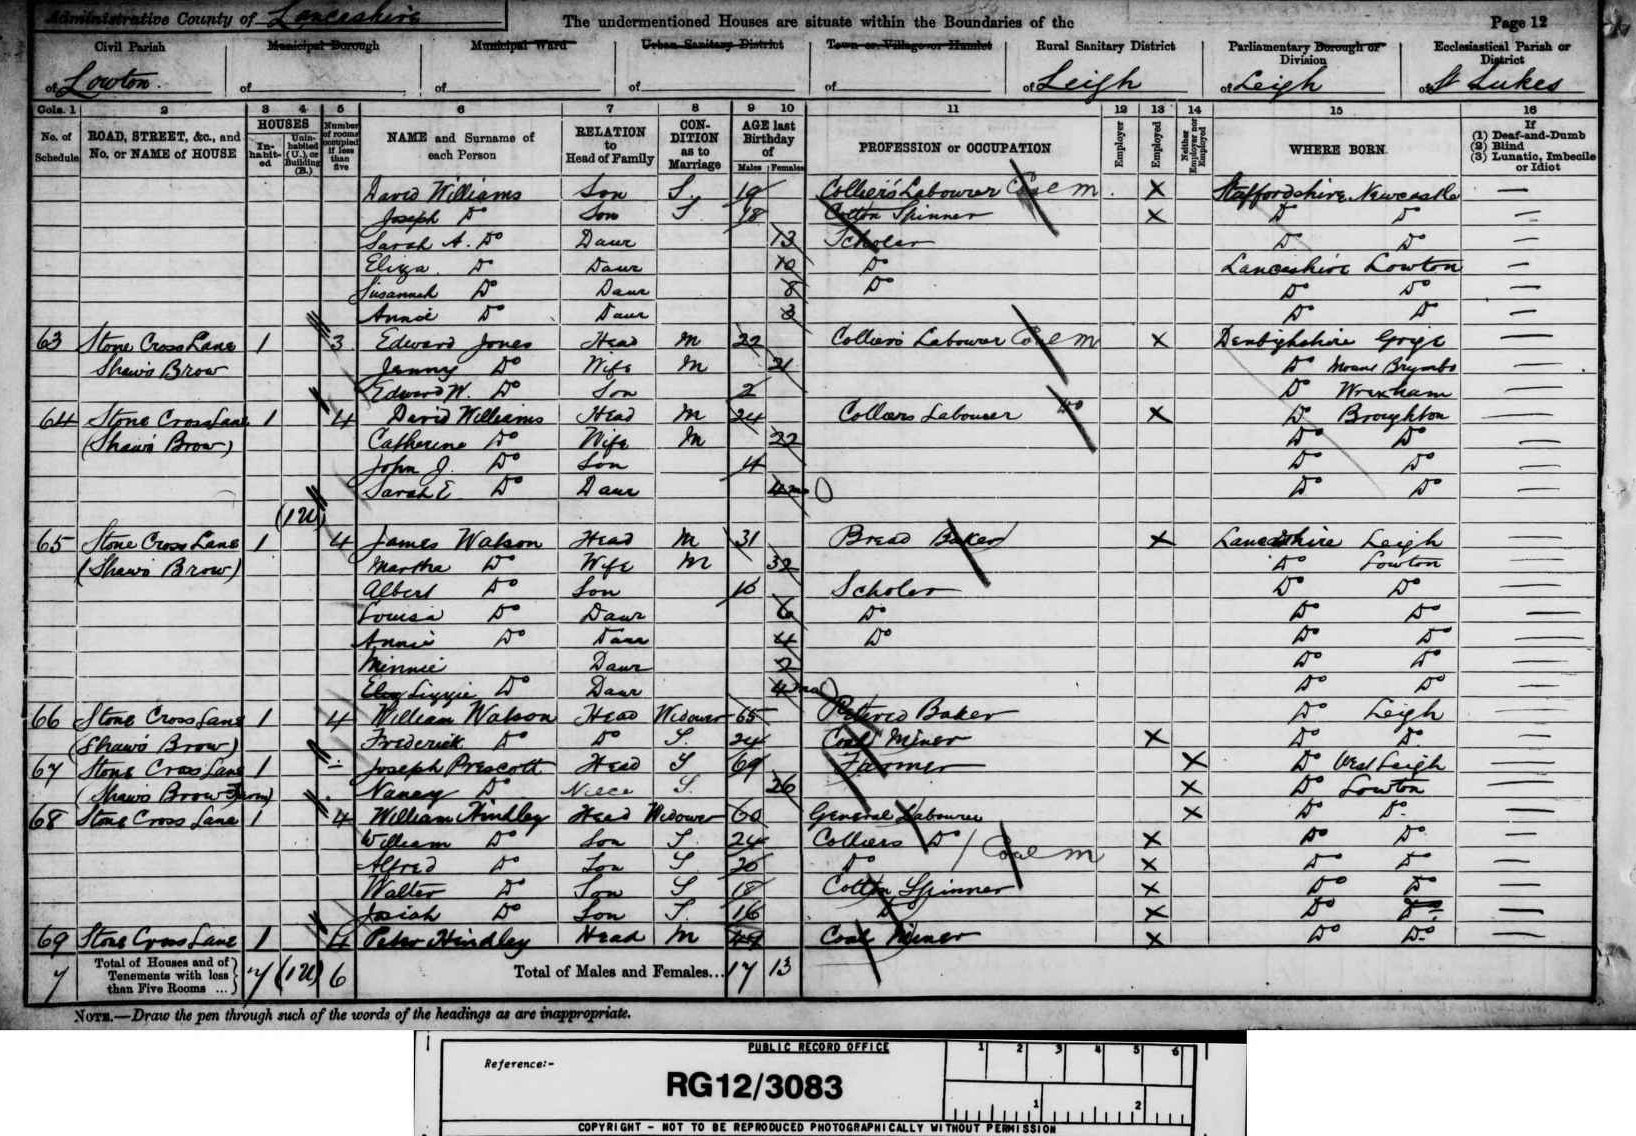 Administrative County of Lancashire The undermentioned Houses are situate within the Boundaries of the Page 12
Civil Parish Municipal Borough Municipal Ward Urban Sanitary District Town or Village or Hamlet Rural Sanitary District Parliamentary Borough or Division Ecclesiastical Parish or District
of Lowton. of of of of of Leigh of Leigh of St Lukes
Cols. 1 2 3 4 5 6 7 8 9 10 11 12 13 14 15 16
No. of Schedule ROAD, STREET, &c., and No. or NAME of HOUSE HOUSES Inhabited Uninhabited (U.), or Building (B.) Number of rooms occupied if less than five NAME and Surname of each Person RELATION to Head of Family CONDITION as to Marriage AGE last Birthday of Males Females PROFESSION or OCCUPATION Employer Employed Neither Employer nor Employed WHERE BORN. If (1) Deaf-and-Dumb (2) Blind (3) Lunatic, Imbecile or Idiot
David Williams Son S. 19 Collier's Labourer Coal M. X Staffordshire Newcastle —
Joseph Do Son S 18 Cotton Spinner X Do Do —
Sarah A. Do Daur 13 Scholar Do Do —
Eliza Do Daur 10 Do Lancashire Lowton —
Susannah Do Daur 8 Do Do Do —
Annie Do Daur 3 Do Do —
63 Stone Cross Lane 1 3 Edward Jones Head M 22 Colliers Labourer Coal M X Denbighshire —
Shaws Brow Jenny Do Wife M 21 Do Brymbo —
Edward W. Do Son 2 Do Wrexham —
64 Stone Cross Lane 1 4 David Williams Head M 24 Colliers Labourer Do X Do Broughton —
(Shaws Brow) Catherine Do Wife M 22 Do Do —
John J. Do Son 4 Do Do —
Sarah E Do Daur 4 mo Do Do —
(1U)
65 Stone Cross Lane 1 4 James Watson Head M 31 Bread Baker X Lancashire Leigh —
(Shaws Brow) Martha Do Wife M 32 Do Lowton —
Albert Do Son 10 Scholar Do Do —
Louisa Do Daur 6 Do Do Do —
Annie Do Daur 4 Do Do Do —
Minnie Daur 2 Do Do —
Lizzie Do Daur 4 mo Do Do —
66 Stone Cross Lane 1 4 William Watson Head Widower 65 Retired Baker Do Leigh —
(Shaws Brow) Frederick Do Do S. 24 Coal Miner X Do Do —
67 Stone Cross Lane 1 Joseph Prescott Head S 69 Farmer X Do West Leigh —
(Shaws Brow Farm) Nancy Do Niece S. 26 X Do Lowton —
68 Stone Cross Lane 1 4 William Hindley Head Widower 60 General Labourer X Do Do —
William Do Son S. 24 Colliers Do / Coal M X Do Do —
Alfred Do Son S 20 Do X Do Do —
Walter Do Son S 18 Cotton Spinner X Do Do —
Josiah Do Son S. 16 Do X Do Do —
69 Stone Cross Lane 1 4 Peter Hindley Head M 49 Coal Miner X Do Do —
7 Total of Houses and of Tenements with less than Five Rooms ... 7 (1U) 6 Total of Males and Females... 17 13
NOTE.—Draw the pen through such of the words of the headings as are inappropriate.
PUBLIC RECORD OFFICE 1 2 3 4 5 6
Reference:-
RG12/3083
1 2
COPYRIGHT - NOT TO BE REPRODUCED PHOTOGRAPHICALLY WITHOUT PERMISSION